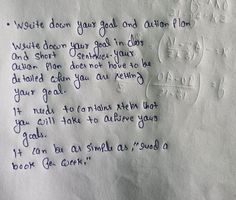 • Write down your goal and action plan
Write down your goal in clear
and short sentence. your
action plan does not have to be
detailed when you are setting
your goal.
It needs to contains steps that
you will take to achieve your
goals.
It can be as simple as, "read a
book per week."